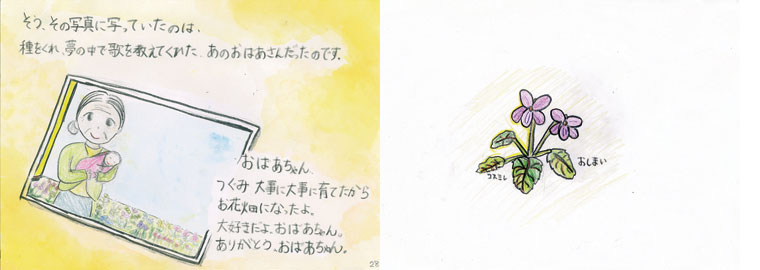 そう、その写真に写っていたのは、
種をくれ、夢の中で歌を教えてくれた、あのおばあさんだったのです。
おばあちゃん、
つぐみ 大事に大事に育てたから
お花畑になったよ。
大好きだよ、おばあちゃん。
ありがとう、おばあちゃん。
28
コスミレ
おしまい